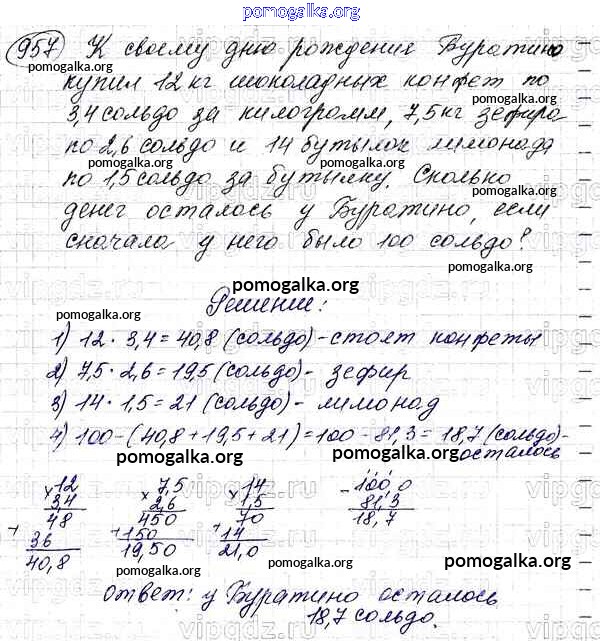 pomogalka.org
957 К своему дню рождения Буратино
pomogalka.org
купил 12 кг шоколадных конфет по
3,4 сольдо за килограмм, 7,5 кг зефира
pomogalka.org pomogalka.org
по 2,6 сольдо и 14 бутылок лимонада
pomogalka.org pomogalka.org
по 1,5 сольдо за бутылку. Сколько
pomogalka.org
денег осталось у Буратино, если
сначала у него было 100 сольдо?
pomogalka.org
pomogalka.org
Решение:
pomogalka.org
1) 12 · 3,4 = 40,8 (сольдо) - стоят конфеты
2) 7,5 · 2,6 = 19,5 (сольдо) - зефир
3) 14 · 1,5 = 21 (сольдо) - лимонад
4) 100 - (40,8 + 19,5 + 21) = 100 - 81,3 = 18,7 (сольдо) -
осталось
pomogalka.org pomogalka.org
× 12 × 7,5 × 14 - 100,0
3,4 2,6 1,5 81,3
48 450 70 18,7
+ 36 + 150 + 14
40,8 19,50 21,0
pomogalka.org pomogalka.org pomogalka.org
Ответ: у Буратино осталось
18,7 сольдо.
pomogalka.org
vipgdz.ru